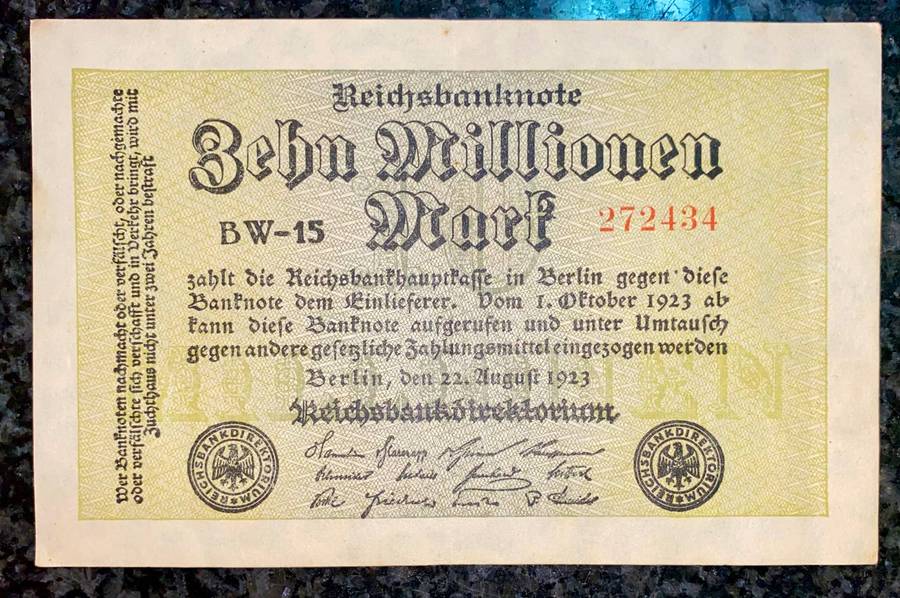 Reichsbanknote
Zehn Millionen
Mark
BW-15
272434
zahlt die Reichsbankhauptkasse in Berlin gegen diese
Banknote dem Einlieferer. Vom 1. Oktober 1923 ab
kann diese Banknote aufgerufen und unter Umtausch
gegen andere gesetzliche Zahlungsmittel eingezogen werden
Berlin, den 22. August 1923
Reichsbankdirektorium
REICHSBANKDIREKTORIUM
REICHSBANKDIREKTORIUM
Wer Banknoten nachmacht oder verfälscht, oder nachgemachte
oder verfälschte sich verschafft und in Verkehr bringt, wird mit
Zuchthaus nicht unter zwei Jahren bestraft